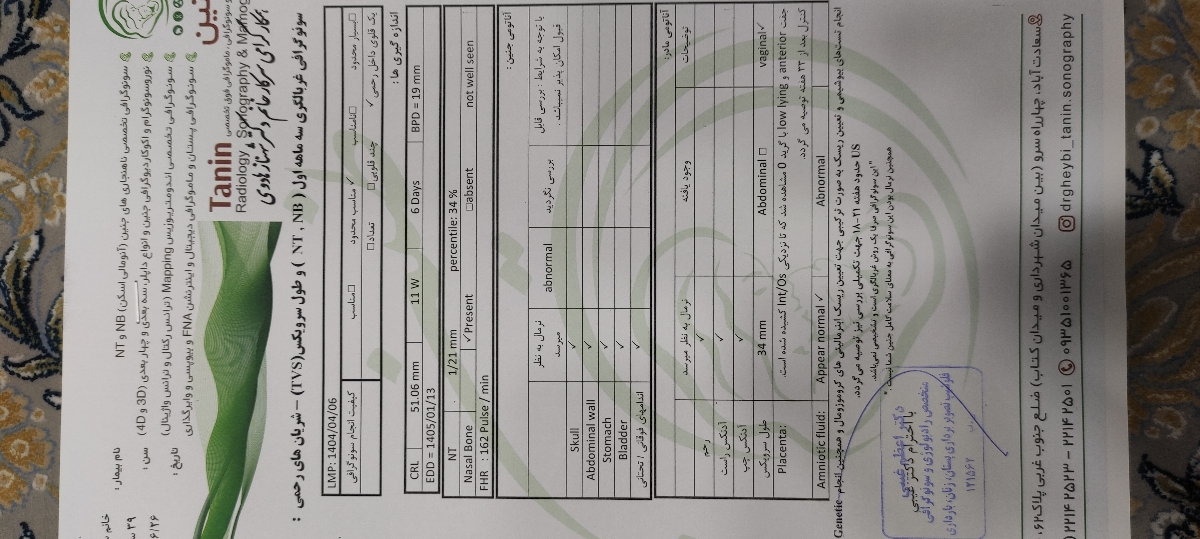 نین
Tanin
Radiology , Sonography & Mamog
سونوگرافی تخصصی ناهنجاری های جنین (آنومالی اسکن) NB و NT
نوروسونوگرام و اکوکاردیوگرافی جنین و انواع داپلر، سه بعدی و چهار بعدی (3D و 4D)
سونوگرافی تخصصی اندومتریوزیس Mapping (ترانس رکتال و ترانس واژینال)
سونوگرافی پستان و ماموگرافی دیجیتال و اینترنشن FNA و بیوپسی و وایرگذاری
نام بیمار :
خانم
سن :
۳۹
تاریخ :
۶/۲۶
سونوگرافی غربالگری سه ماهه اول ( NT , NB ) و طول سرویکس(TVS) – شریان های رحمی :
LMP: 1404/04/06
کیفیت انجام سونوگرافی
□مناسب
مناسب محدود ✓
□نامناسب
□بسیار محدود
تعداد:
چند قلویی□
یک قلوی داخل رحمی ✓
اندازه گیری ها :
CRL 51.06 mm 11 W 6 Days BPD = 19 mm
EDD = 1405/01/13
NT 1/21 mm percentile: 34 %
Nasal Bone ✓Present □absent not well seen
FHR : 162 Pulse / min
آناتومی جنین :
نرمال به نظر میرسد
abnormal
بررسی نگردید
با توجه به شرایط ، بررسی قابل قبول امکان پذیر نمیباشد .
Skull ✓
Abdominal wall ✓
Stomach ✓
Bladder ✓
اندامهای فوقانی / تحتانی ✓
آناتومی مادر:
نرمال به نظر میرسد
وجود یافته
توضیحات
رحم ✓
آدنکس راست ✓
آدنکس چپ ✓
طول سرویکس 34 mm Abdominal □ vaginal✓
Placenta: جفت anterior و low lying با گرید 0 مشاهده شد که تا نزدیکی Int/Os کشیده شده است
کنترل بعد از ۲۲ هفته توصیه می گردد.
Amniotic fluid: Appear normal ✓ Abnormal
انجام تستهای بیوشیمی و تعیین ریسک به صورت ترکیبی جهت تعیین ریسک ابنرمالیتی های کروموزومال و همچنین انجام Genetic
US حدود هفته ۲۱-۱۸ جهت تکمیلی بررسی نیز توصیه می گردد.
"این سونوگرافی صرفا یک روش غربالگری است و تشخیصی نمی‌باشد.
همچنین نرمال بودن این سونوگرافی به معنای سلامت کامل جنین شما نیست ."
با احترام دکتر غیبی
دکتر اعظم غیبی
متخصص رادیولوژی و سونوگرافی
۱۳۱۵۶۲
سعادت آباد، چهارراه سرو (بین میدان شهرداری و میدان کتاب) ضلع جنوب غربی پلاک۶۲،
۲۲۱۴ ۲۵۲۳ – ۲۲۱۴ ۲۵۰۱ ۰۹۳۵۱۰۰۱۳۶۵ drgheybi_tanin.sonography